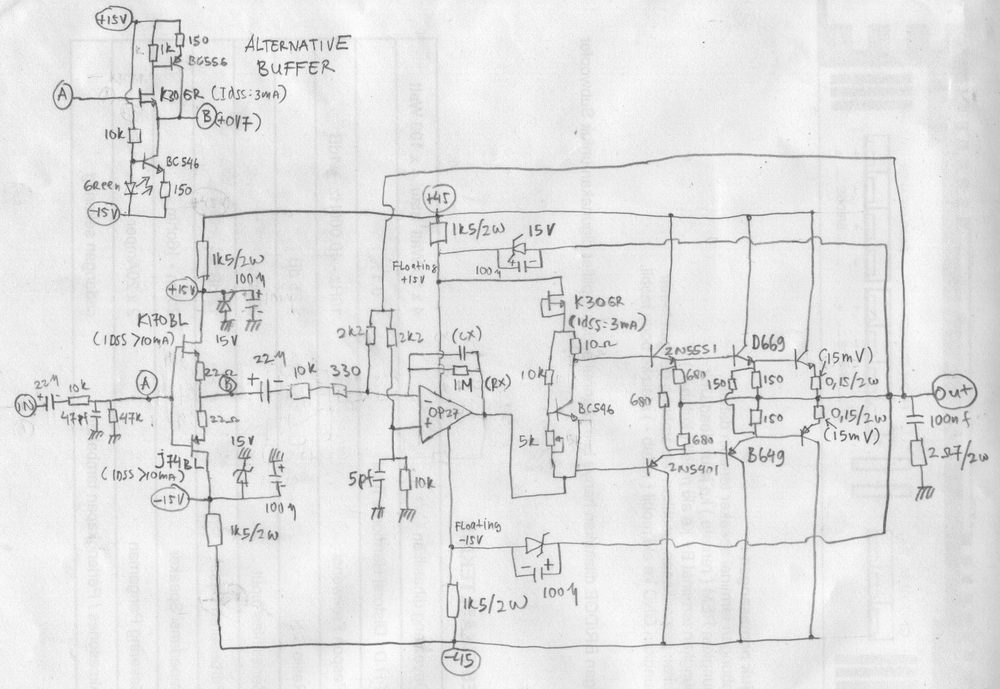 +15V
150
1k
BC556
ALTERNATIVE
BUFFER
A
K30GR (Idss=3mA)
B (+0V7)
10k
BC546
Green
150
-15V
+45
1k5/2W
15V
100µ
Floating
+15V
1k5/2W
+15V
100µ
15V
K170BL
(IDSS >10mA)
K30GR
(Idss=3mA)
10Ω
2k2
2k2
(CX)
1M
(RX)
22Ω
B
22µ
10k
330
OP27
10k
BC546
5k
2N5551
D669
(15mV)
680
680
150
150
0,15/2W
Out
22µ
10k
A
IN
47pf
47k
22Ω
15V
J74BL
(IDSS >10mA)
-15V
100µ
1k5/2W
5pf
10k
680
2N5401
150
B649
0,15/2W
(15mV)
100nf
2Ω7/2W
Floating
-15V
100µ
1k5/2W
-45